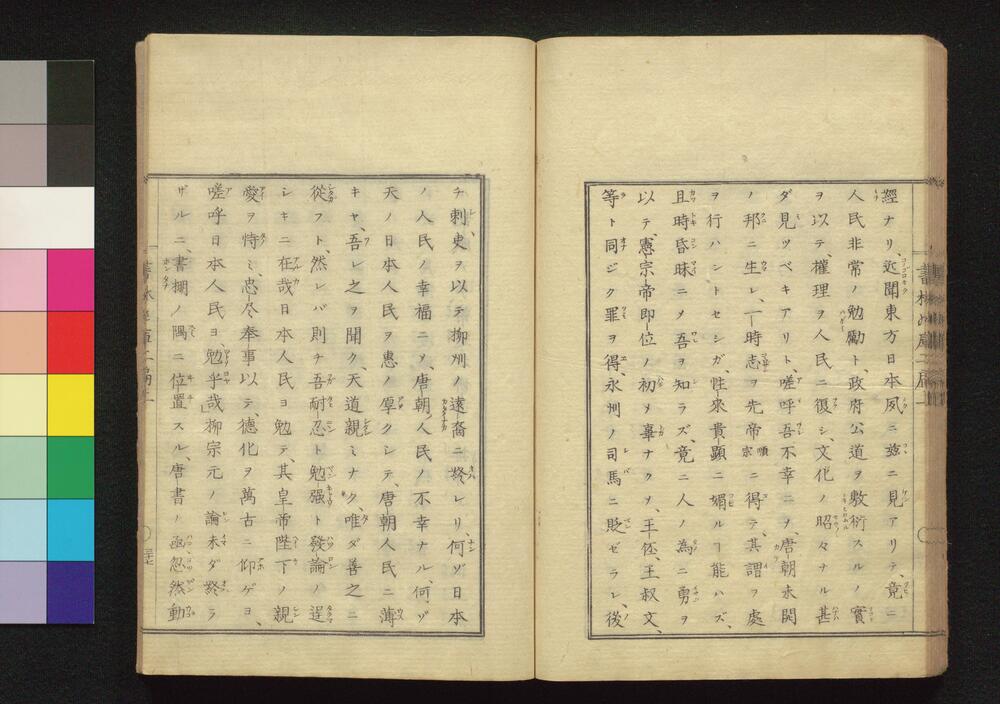 經ナリ、近聞東方日本夙ニ茲ニ見アリテ、竟ニ
人民非常ノ勉勵ト、政府公道ヲ敷衍スルノ實
ヲ以テ、權理ヲ人民ニ復シ、文化ノ昭々ナル甚
ダ見ツベキアリト、嗟呼吾不幸ニヲ、唐朝未開
ノ邦ニ生レ、一時志ヲ先帝順宗ニ得テ、其謂フ處
ヲ行ハントセシガ、性來貴顯ニ媚ルヿ能ハズ、
且時昏昧ニメ吾ヲ知ラズ、竟ニ人ノ為ニ勇ヲ
以テ、憲宗帝即位ノ初メ辜ナクヲ、王伾、王叔文、
等ト同ジク罪ヲ得、永州ノ司馬ニ貶ゼラレ、後
チ刺史ヲ以テ柳州ノ遠裔ニ終レリ、何ゾ日本
ノ人民ノ幸福ニヲ、唐朝人民ノ不幸ナル、何ゾ
天ノ日本人民ヲ惠ノ厚クシテ、唐朝人民ニ薄
キヤ、吾レ之ヲ聞ク、天道親ミナク、唯ダ善之ニ
從フト、然レバ則チ吾耐忍ト勉强ト發論ノ逞
シキニ在哉日本人民ヨ勉テ、其皇帝陛下ノ親
愛ヲ恃ミ、忠尽奉事以テ、德化ヲ萬古ニ仰ゲヨ、
嗟呼日本人民ヨ、勉乎哉」柳宗元ノ論未ダ終ラ
ザルニ、書棚ノ隅ニ位置スル、唐書ノ函忽然動